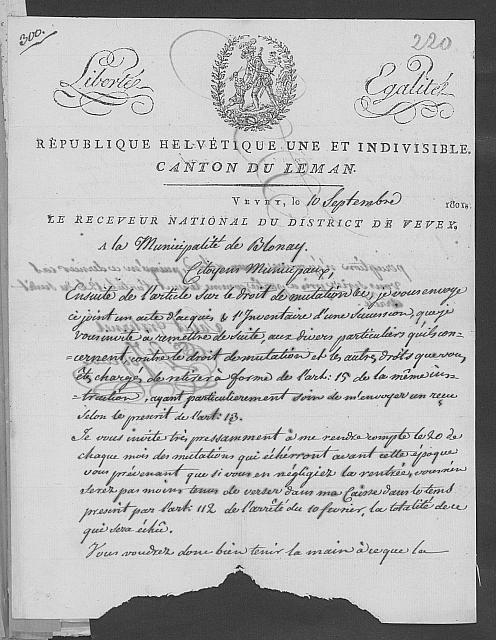 300.
220
Liberté
Egalité
RÉPUBLIQUE HELVÉTIQUE UNE ET INDIVISIBLE.
CANTON DU LEMAN.
VEVEY, le 10 Septembre 1801.
LE RECEVEUR NATIONAL DU DISTRICT DE VEVEY.
A la Municipalité de Blonay.
Citoyens Municipaux,
Ensuite de l'article sur le droit de mutation &c, je vous envoye
ci joint un acte d'acquis & 1 Inventaire d'une Succession, que je
vous invite a remettre de suite, aux divers particuliers qu'ils con-
-cernent, contre le droit de mutation et les autres droits que vous
êtes chargés de retirer à forme de l'art: 15 de la même ins-
-truction, ayant particulierement soins de m'envoyer un recu
selon le prescrit de l'art: 13.
Je vous invite très pressamment à me rendre compte le 20 de
chaque mois des mutations qui écherront avant cette époque
vous prévenant que si vous en négligiez la rentrée, vous n'en
serez pas moins tenus de verser dans ma Caisse dans le tems
prescrit par l'art: 112 de l'arrêté du 10 fevrier, la totalité de ce
qui sera échû.
Vous voudrez donc bien tenir la main à ce que la